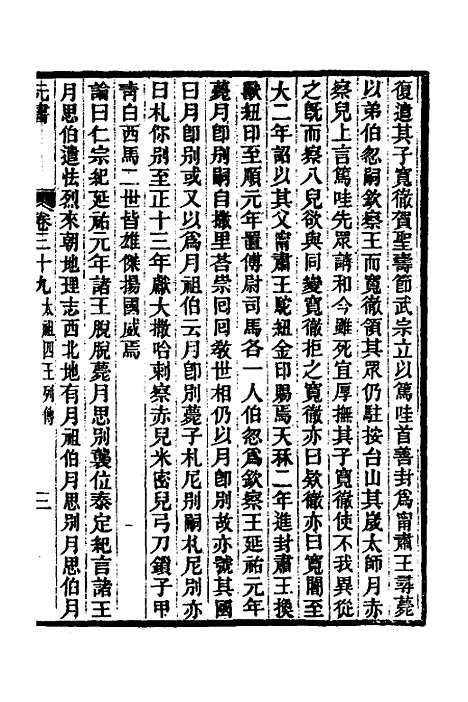 復遣其子寬徹賀聖壽節武宗立以篤哇首善封爲甯肅王尋薨
以弟伯忽嗣欽察王而寬徹領其眾仍駐按台山其歲太師月赤
察兒上言篤哇先眾請和今雖死宜厚撫其子寬徹使不我異從
之既而察八兒欲與同變寬徹拒之寬徹亦曰欵徹亦曰寬闍至
大二年詔以其父甯肅王駝紐金印賜焉天秝二年進封肅王換
獸紐印至順元年置傅尉司馬各一人伯忽爲欽察王延祐元年
薨月卽別嗣自撒里荅崇回回敎世相仍以月卽別故亦號其國
曰月卽別或又以爲月祖伯云月卽別薨子札尼別嗣札尼別亦
曰札你別至正十三年獻大撒哈剌察赤兒米密兒弓刀鎖子甲
靑白西馬二世皆雄傑揚國威焉
論曰仁宗紀延祐元年諸王脫脫薨月思別襲位泰定紀言諸王
月思伯遣怯烈來朝地理志西北地有月祖伯月思別月思伯月
元書
卷三十九 太祖四王列傳
三